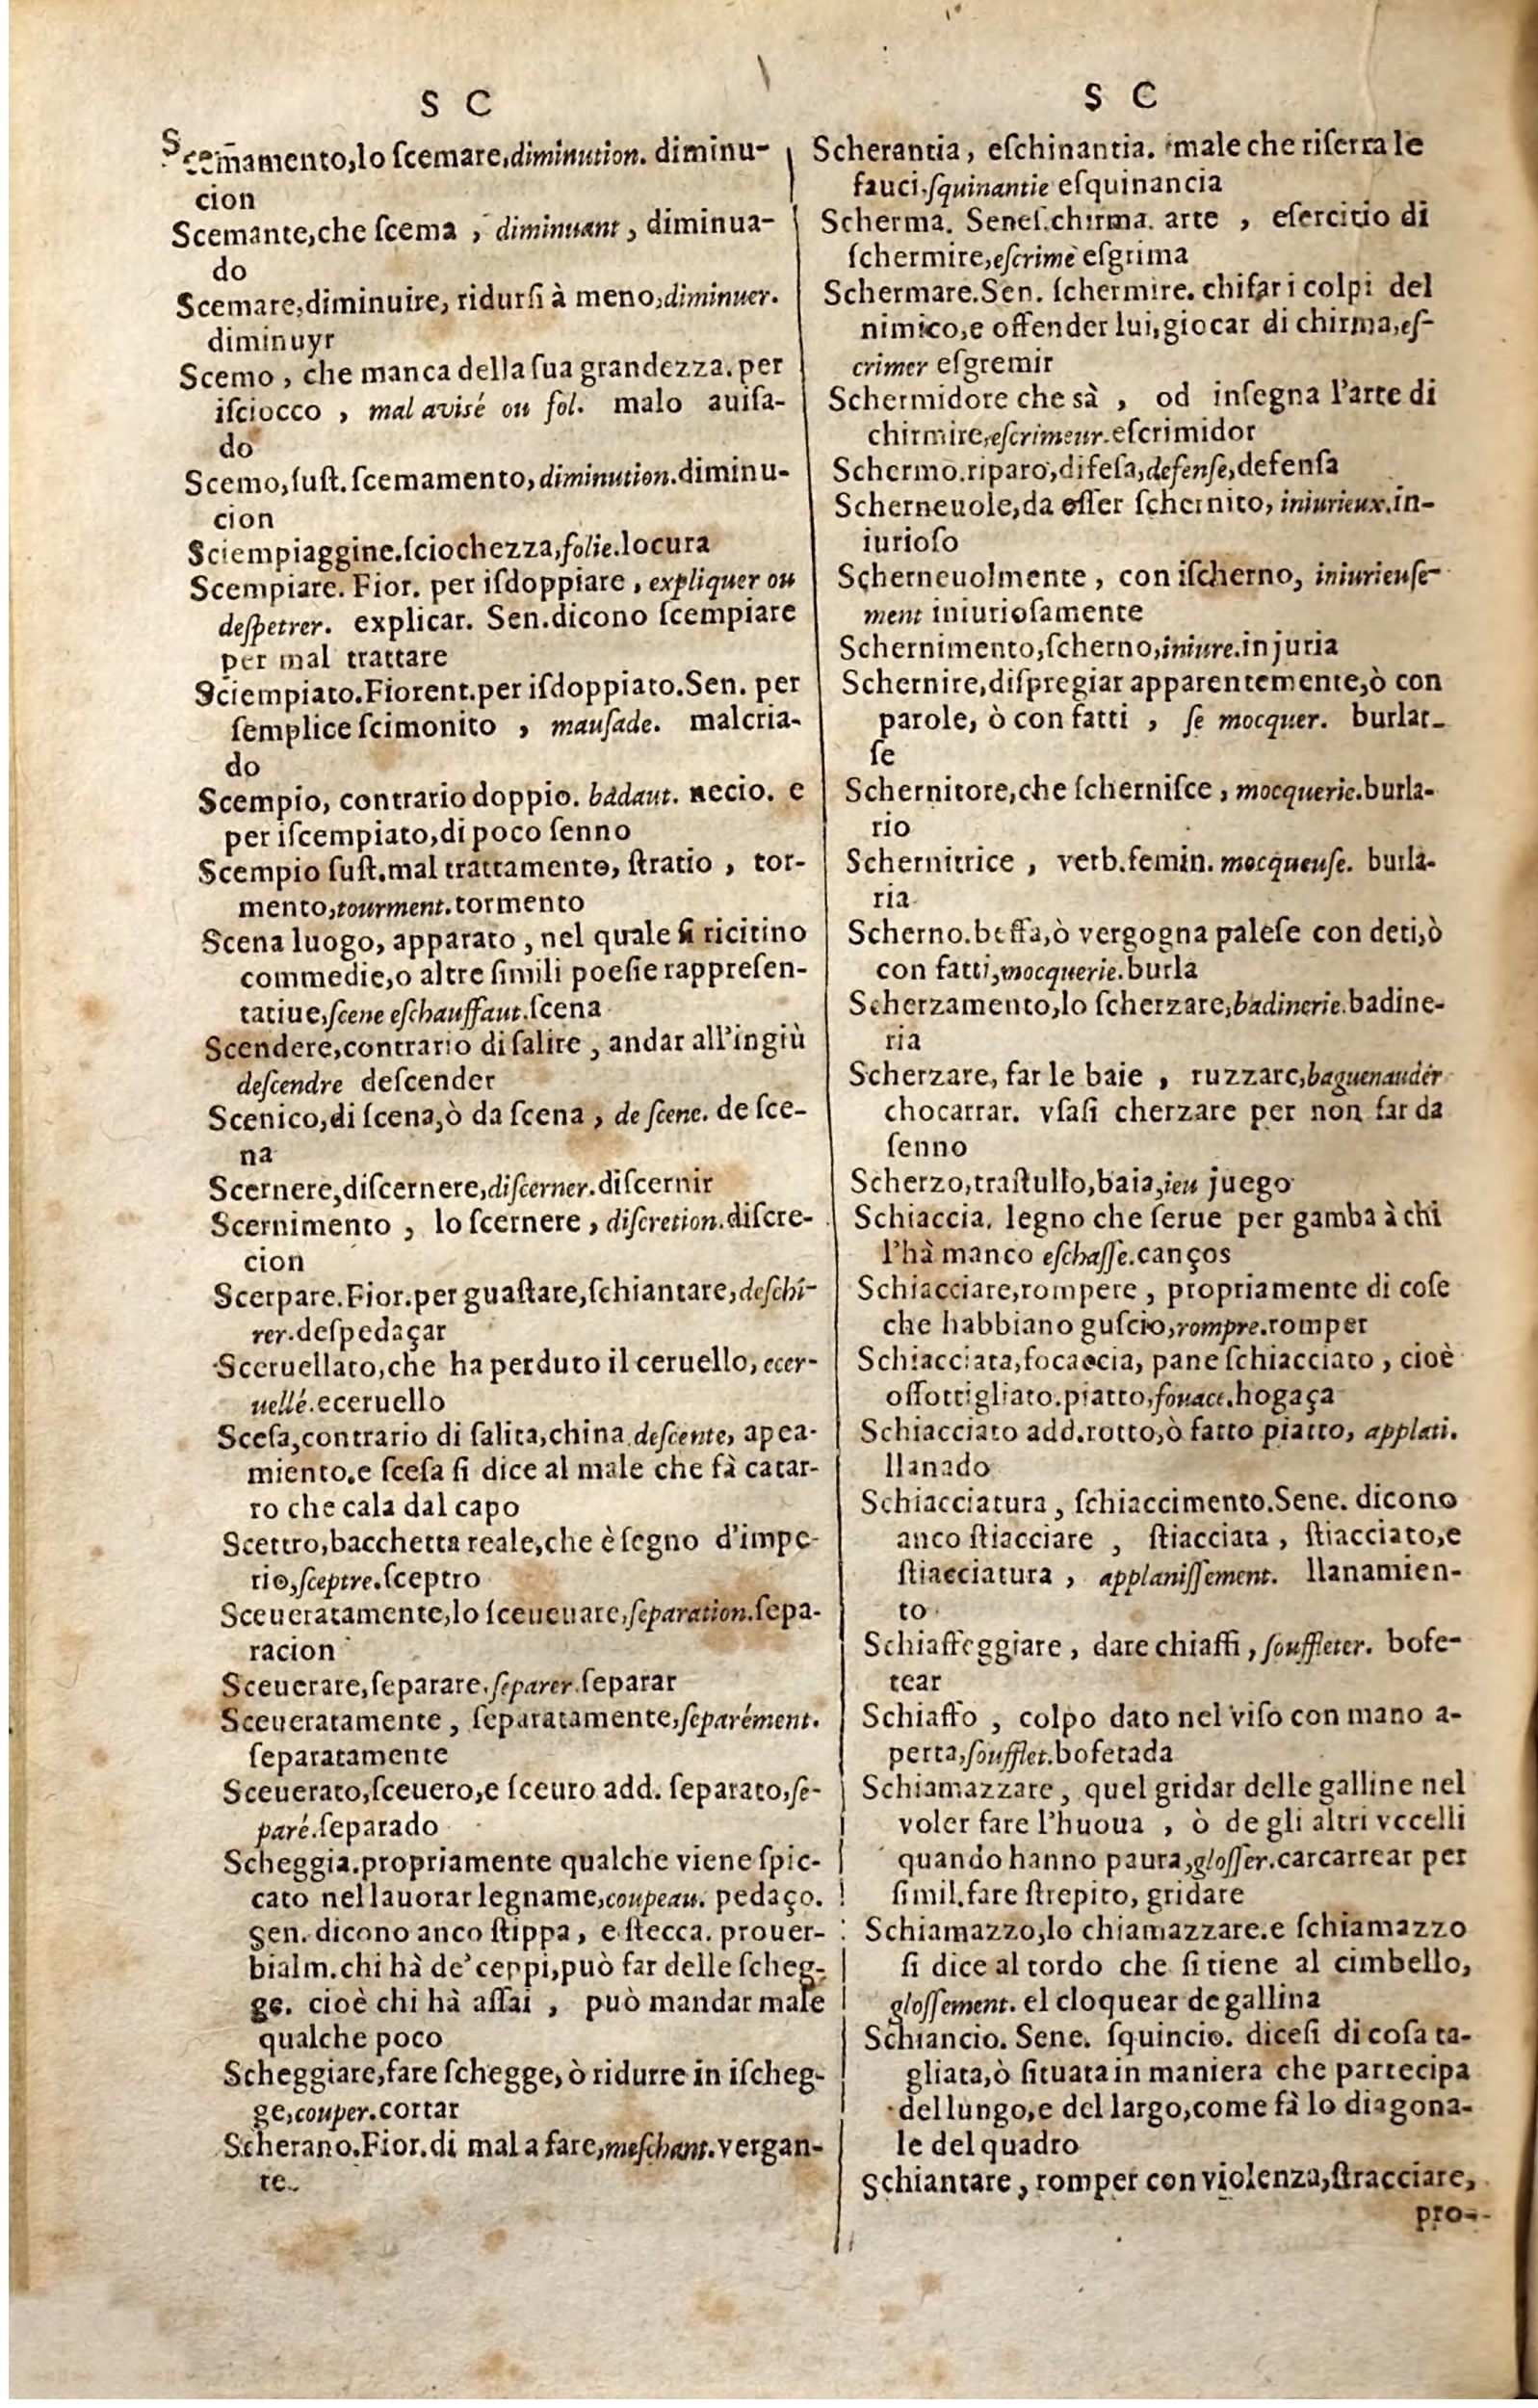 S C
Scem̃amento,lo ſcemare,diminution. diminu-
cion
Scemante,che ſcema , diminuant , diminua-
do
Scemare,diminuire, ridurſi à meno,diminuer.
diminuyr
Scemo , che manca della ſua grandezza. per
iſciocco , mal avisé ou fol. malo auiſa-
do
Scemo,ſuſt. ſcemamento,diminution.diminu-
cion
Sciempiaggine.ſciochezza,folie.locura
Scempiare. Fior. per iſdoppiare , expliquer ou
deſpetrer. explicar. Sen.dicono ſcempiare
per mal trattare
Sciempiato.Fiorent.per iſdoppiato.Sen. per
ſemplice ſcimonito , mauſade. malcria-
do
Scempio, contrario doppio. badaut. necio. e
per iſcempiato,di poco ſenno
Scempio ſuſt.mal trattamento, ſtratio , tor-
mento,tourment.tormento
Scena luogo, apparato , nel quale ſi ricitino
commedie,o altre ſimili poeſie rappreſen-
tatiue,ſcene eſchauffaut.ſcena
Scendere,contrario di ſalire , andar all'ingiù
deſcendre deſcender
Scenico,di ſcena,ò da ſcena , de ſcene. de ſce-
na
Scernere,diſcernere,diſcerner.diſcernir
Scernimento , lo ſcernere , diſcretion.diſcre-
cion
Scerpare.Fior.per guaſtare,ſchiantare,deſchi-
rer.deſpedaçar
Sceruellato,che ha perduto il ceruello, ecer-
uellé.eceruello
Sceſa,contrario di ſalita,china.deſcente, apea-
miento.e ſceſa ſi dice al male che fà catar-
ro che cala dal capo
Scettro,bacchetta reale,che è ſegno d'impe-
rio,ſceptre.ſceptro
Sceueratamente,lo ſceueuare,ſeparation.ſepa-
racion
Sceuerare,ſeparare.ſeparer.ſeparar
Sceueratamente , ſeparatamente,ſeparément.
ſeparatamente
Sceuerato,ſceuero,e ſceuro add. ſeparato,ſe-
paré.ſeparado
Scheggia.propriamente qualche viene ſpic-
cato nel lauorar legname,coupeau. pedaço.
Sen. dicono anco ſtippa, e ſtecca. prouer-
bialm.chi hà de' ceppi,può far delle ſcheg-
ge. cioè chi hà aſſai , può mandar male
qualche poco
Scheggiare,fare ſchegge, ò ridurre in iſcheg-
ge,couper.cortar
Scherano.Fior.di mal a fare,meſchant.vergan-
te.
S C
Scherantia, eſchinantia. male che riſerra le
fauci.ſquinantie eſquinancia
Scherma. Seneſ.chirma. arte , eſercitio di
ſchermire,eſcrime eſgrima
Schermare.Sen. ſchermire. chifar i colpi del
nimico,e offender lui,giocar di chirma,eſ-
crimer eſgremir
Schermidore che sà , od inſegna l'arte di
chirmire,eſcrimeur.eſcrimidor
Schermo.riparo,difeſa,defenſe,defenſa
Scherneuole,da eſſer ſchernito, iniurieux.in-
iurioſo
Scherneuolmente , con iſcherno, iniurieuſe-
ment iniurioſamente
Schernimento,ſcherno,iniure.injuria
Schernire,diſpregiar apparentemente,ò con
parole, ò con fatti , ſe mocquer. burlar-
ſe
Schernitore,che ſcherniſce , mocquerie.burla-
rio
Schernitrice , verb.femin. mocqueuſe. burla-
ria
Scherno.beffa,ò vergogna paleſe con deti,ò
con fatti,mocquerie.burla
Scherzamento,lo ſcherzare,badinerie.badine-
ria
Scherzare, far le baie , ruzzare,baguenauder
chocarrar. vſaſi cherzare per non far da
ſenno
Scherzo,traſtullo,baia,ieu juego
Schiaccia. legno che ſerue per gamba à chi
l'hà manco eſchaſſe.canços
Schiacciare,rompere , propriamente di coſe
che habbiano guſcio,rompre.romper
Schiacciata,focaccia, pane ſchiacciato , cioè
oſſottigliato.piatto,fouace.hogaça
Schiacciato add.rotto,ò fatto piatto, applati.
llanado
Schiacciatura , ſchiaccimento.Sene. dicono
anco ſtiacciare , ſtiacciata , ſtiacciato,e
ſtiacciatura , applaniſſement. llanamien-
to
Schiaffeggiare , dare chiaffi , ſouffleter. bofe-
tear
Schiaffo , colpo dato nel viſo con mano a-
perta,ſoufflet.bofetada
Schiamazzare , quel gridar delle galline nel
voler fare l'huoua , ò de gli altri vccelli
quando hanno paura,gloſſer.carcarrear per
ſimil.fare ſtrepito, gridare
Schiamazzo,lo chiamazzare.e ſchiamazzo
ſi dice al tordo che ſi tiene al cimbello,
gloſſement. el cloquear de gallina
Schiancio. Sene. ſquincio. diceſi di coſa ta-
gliata,ò ſituata in maniera che partecipa
del lungo,e del largo,come fà lo diagona-
le del quadro
Schiantare , romper con violenza,ſtracciare,
pro-